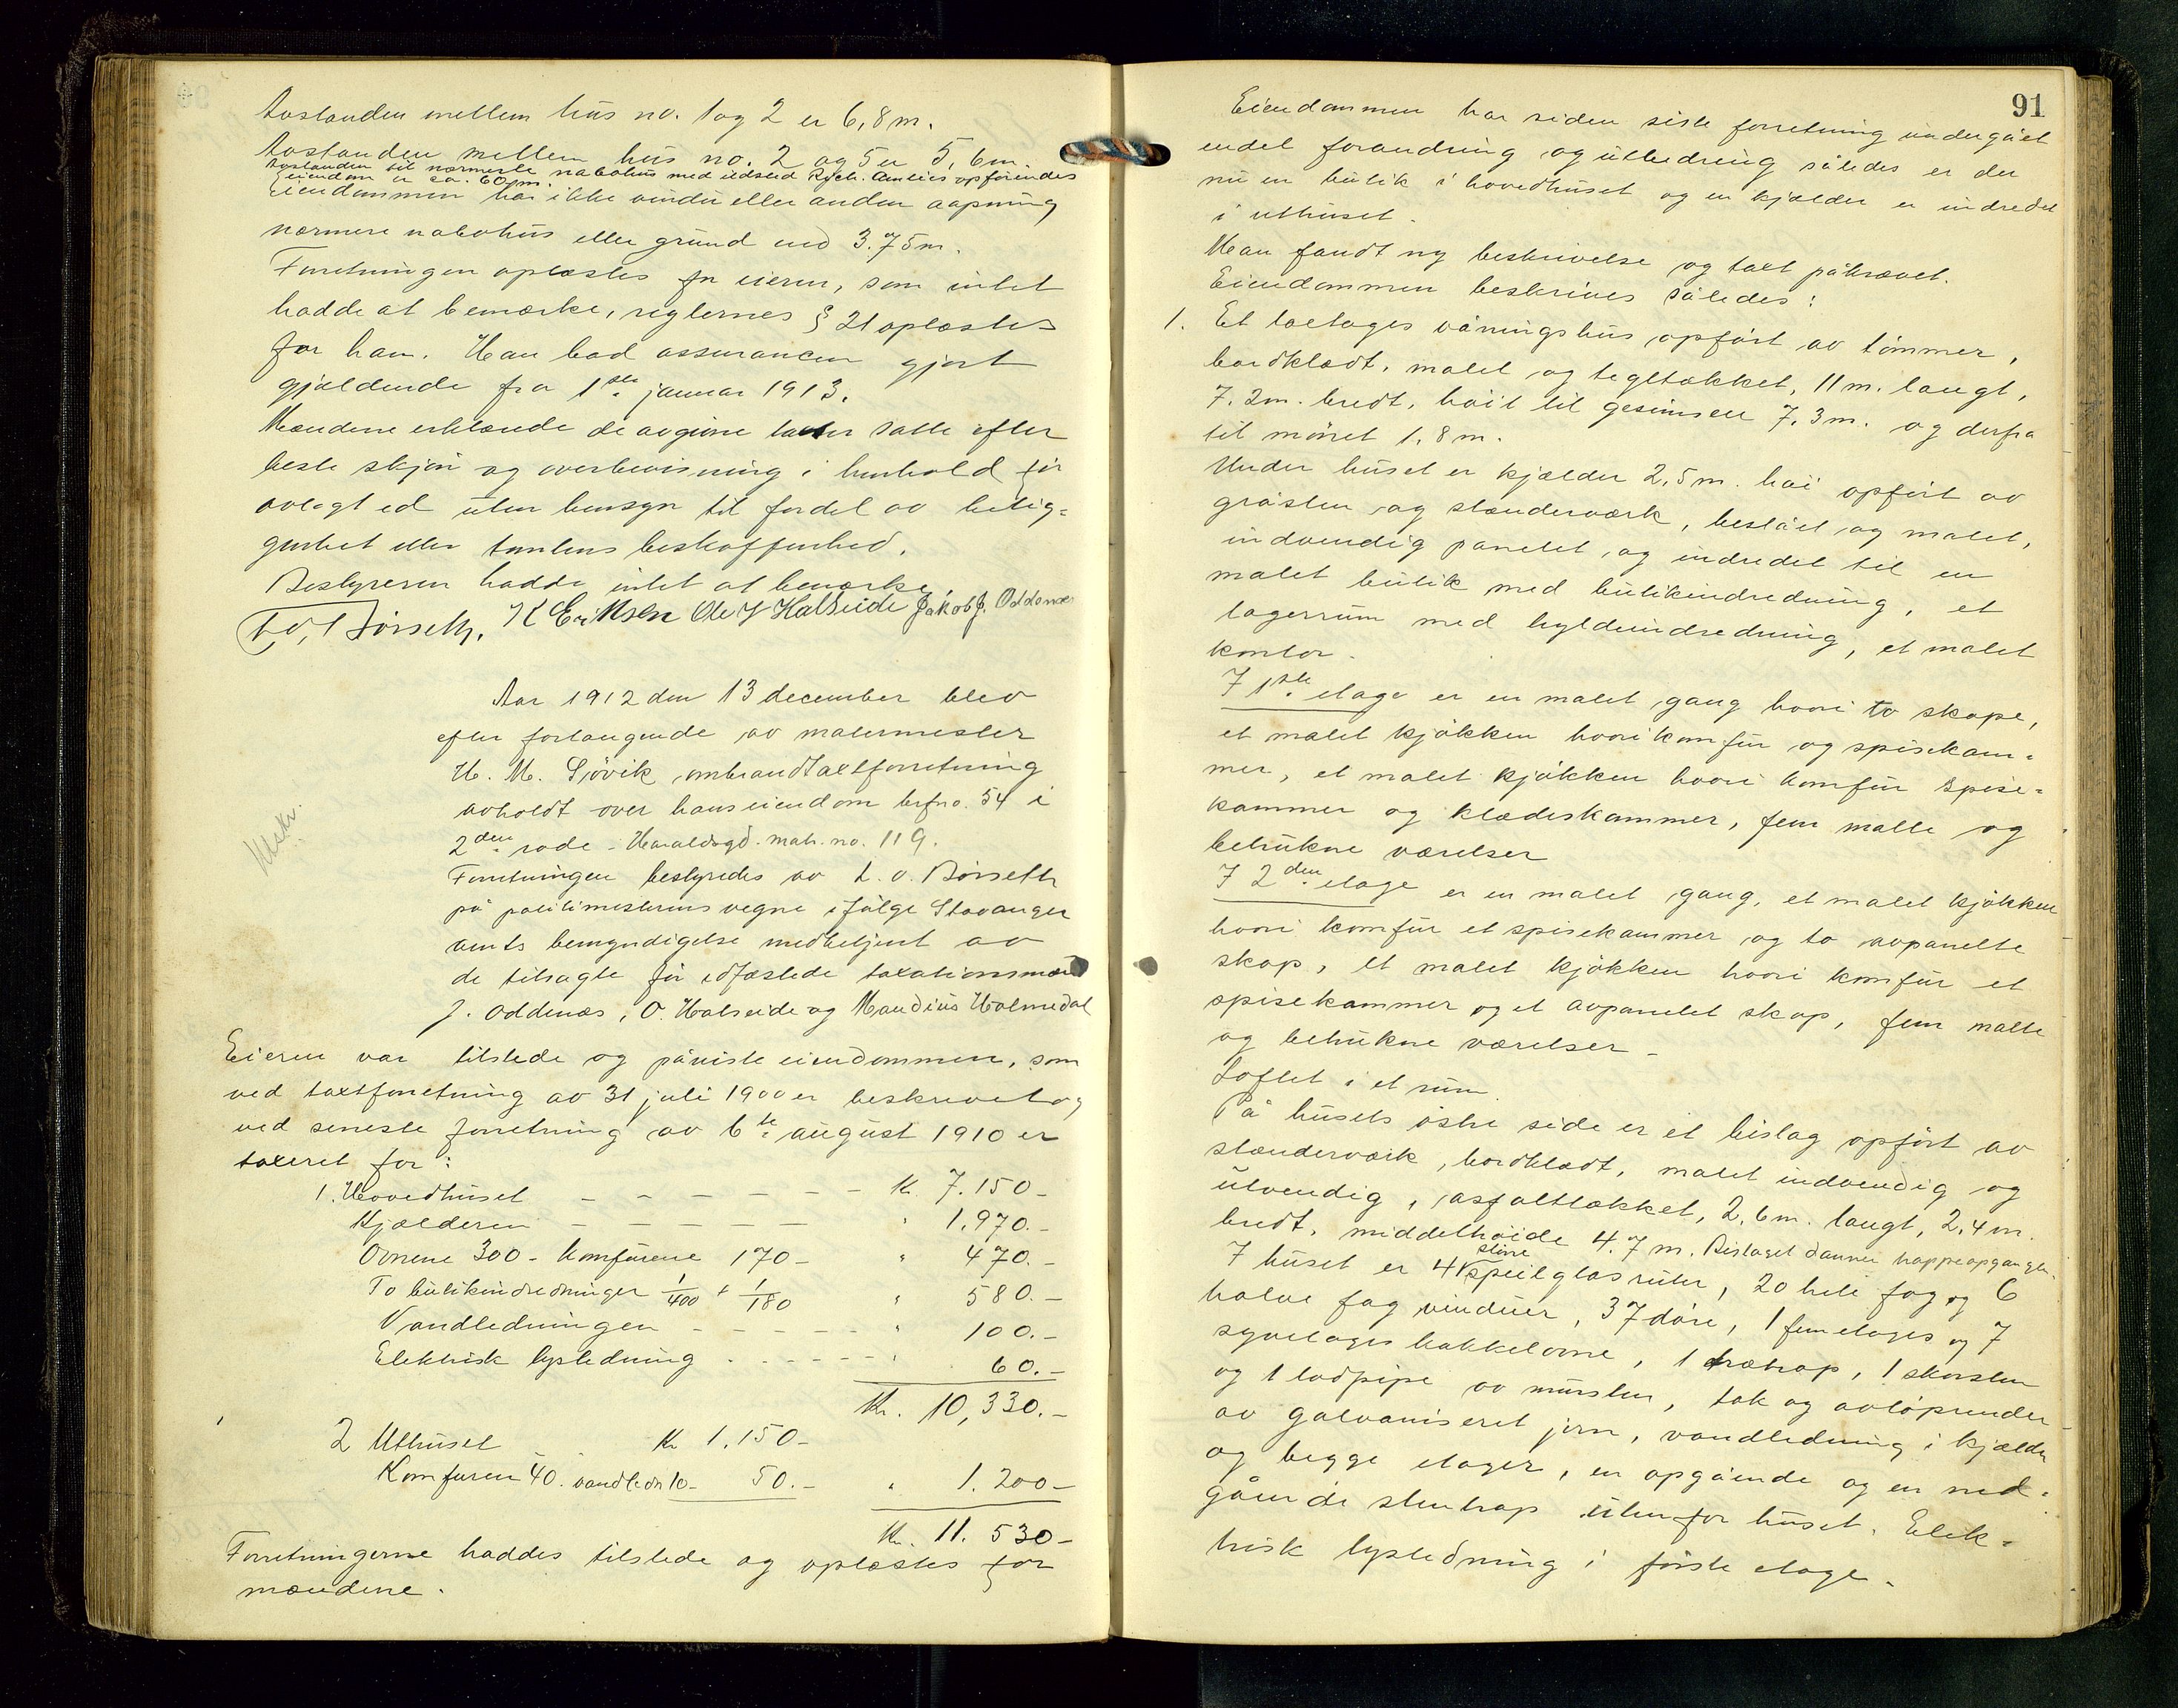 Avstanden mellem hus no. 1 og 2 er 6,8 m.
Avstanden mellem hus no. 2 og 5 er 5,6 m.
Avstanden til nærmeste nabohus med ildsted Rych. Amlies opførendes
eiendom er ca. 60 m.
Eiendommen har ikke vindu eller anden aapning
nærmere nabohus eller grund end 3.75 m.
Forretningen oplæstes for eieren, som intet
hadde at bemærke, reglernes § 21 oplæstes
for ham. Han bad assurancen gjort
gjældende fra 1ste januar 1913.
Mændene erklærede de avgivne takster satte efter
beste skjøn og overbevisning i henhold til før
avlagt ed uten hensyn til fordel av belig-
genhet eller tomtens beskaffenhed.
Bestyreren hadde intet at bemærke
L. O. Børseth. K Eriksen Ole J Halseide Jakob J. Oddenæs
Aar 1912 den 13 december blev
efter forlangende av malermester
H. M. Sjøvik ombrandtaxtforretning
avholdt over hans eiendom brfno. 54 i
2den rode - Haraldsgd. matr. no. 119.
Forretningen bestyredes av L. O. Børseth
på politimesterens vegne ifølge Stavanger
amts bemyndigelse medbetjent av
de tilsagte før edfæstede taxationsmænd
J. Oddenæs, O. Halseide og Mandius Holmedal
Eieren var tilstede og påviste eiendommen, som
ved taxtforretning av 31 juli 1900 er beskrevet og
ved seneste forretning av 6te august 1910 er
taxeret for:
1. Hovedhuset - - - - - - Kr. 7.150-
Kjælderen - - - - - " 1.970.-
Ovnene 300- Komfurene 170- " 470.-
To butikindredninger 1/400 + 1/180 " 580.-
Vandledningen - - - - - " 100.-
Elektrisk lysledning - - - - " 60.-
Kr. 10,330.-
2 Uthuset - - Kr 1.150-
Komfuren 40. vandledn 10- 50.- " 1.200-
Kr. 11.530-
Forretningerne haddes tilstede og oplæstes for
mændene.
Utskr.
91
Eiendommen har siden siste forretning undergået
endel forandring og utbedring således er der
nu en butik i hovedhuset og en kjælder er indredet
i uthuset.
Man fandt ny beskrivelse og taxt påkrævet.
Eiendommen beskrives således:
1. Et toetages våningshus opført av tømmer,
bordklædt, malet og tegltækket, 11 m. langt,
7.2 m. bredt, høit til gesimsen 7.3 m. og derfra
til mønet 1.8 m.
Under huset er kjælder 2,5 m. høi opført av
gråsten og stænderværk, beslået og malet,
indvendig panelet og indredet til en
malet butik med butikindredning, et
lagerrum med hyldeindredning, et malet
kontor.
I 1ste etage er en malet gang hvori to skape,
et malet kjøkken hvori komfur og spisekam-
mer, et malet kjøkken hvori komfur spise-
kammer og klædeskammer, fem malte og
betrukne værelser
I 2den etage er en malet gang, et malet kjøkken
hvori komfur et spisekammer og to avpanelte
skap, et malet kjøkken hvori komfur et
spisekammer og et avpanelet skap, fem malte
og betrukne værelser -
Loftet i et rum.
På husets østre side er et bislag opført av
stænderværk, bordklædt, malet indvendig og
utvendig, asfalttækket, 2,6 m. langt, 2,4 m.
bredt, middelhøide 4.7 m. Bislaget danner trappeopgangen.
I huset er 4 store speilglasruter, 20 hele fag og 6
halve fag vinduer, 37 døre, 1 femetages og 7
syvetages kakkelovne, 1 trætrap, 1 skorsten
og 1 lodpipe av mursten, tak og avløpsrender
av galvaniseret jern, vandledning i kjælder
og begge etager, en opgående og en ned-
gående stentrap utenfor huset. Elek-
trisk lysledning i første etage.